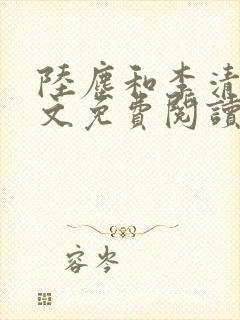 陸塵和李清
文免費閱讀
容岑